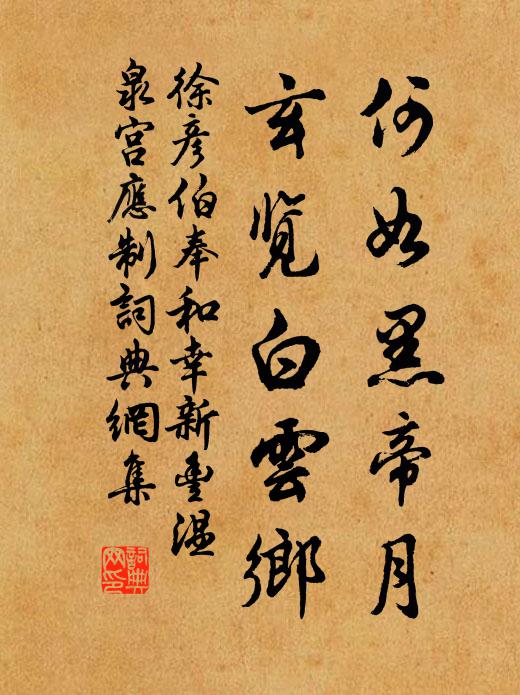 何如黑帝月
玄览白雲鄉
徐彥伯奉和幸新豊温
泉宫應制詞典網集
詞典
网印